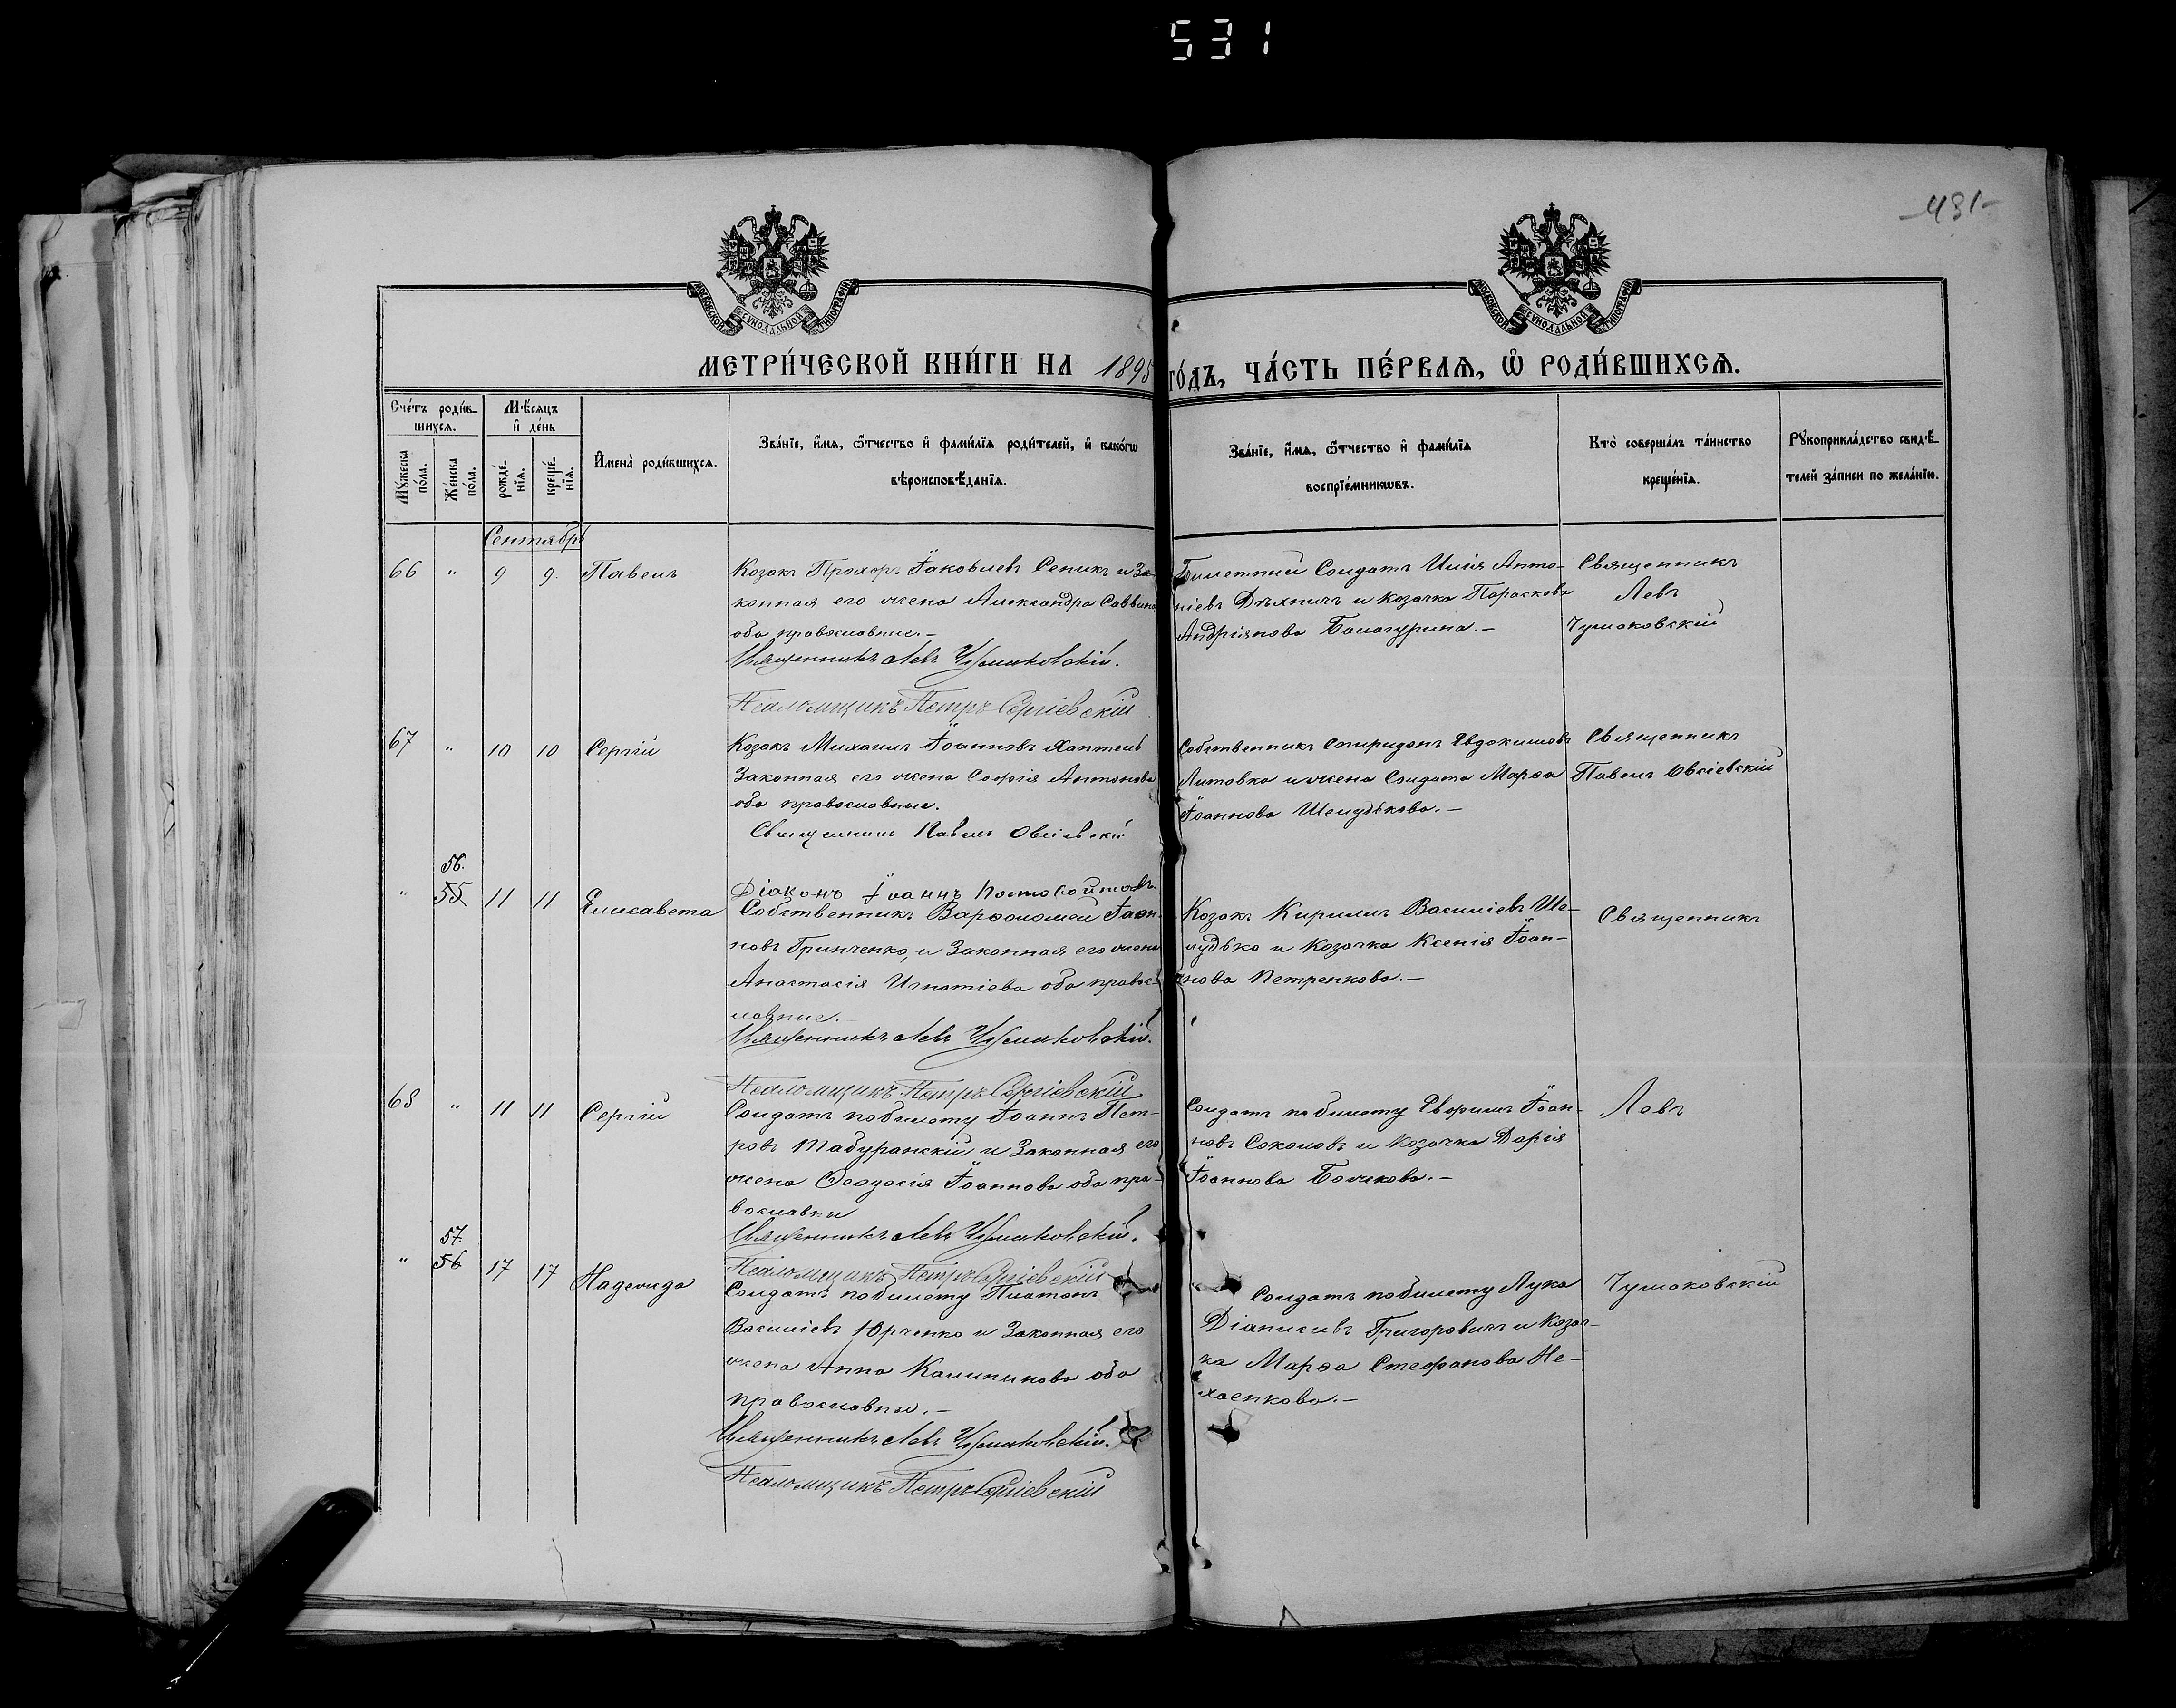 531
-431-
МОСКОВСКОЙ СѴНОДАЛЬНОЙ ТИПОГРАФІИ
МОСКОВСКОЙ СѴНОДАЛЬНОЙ ТИПОГРАФІИ
МЕТРИ́ЧЕСКОЙ КНИ́ГИ НА 1895 ГО́ДЪ, ЧА́СТЬ ПЕ́РВАЯ, Ѡ РОДИ́ВШИХСЯ.
Сче́тъ роди́в-
шихся.
Мѣ́сяцъ
и де́нь
Му́жеска по́ла.
Же́нска по́ла.
рожде́-
нїя.
креще́-
нїя.
Имена̀ роди́вшихся.
Зва́нїе, и́мя, ѻ́тчество и фами́лїя роди́телей, и како́гѡ
вѣроисповѣ́данїя.
Зва́нїе, и́мя, ѻ́тчество и фами́лїя
воспрїе́мникѡвъ.
Кто̀ соверша́лъ та́инство
креще́нїя.
Рꙋкоприкла́дство свидѣ́-
телей за́писи по жела́нїю.
Сентябрь
66 " 9 9. Павелъ
Козакъ Прохоръ Іаковлевъ Сепикъ и За-
конная его жена Александра Саввина,
оба православные.-
Священникъ Левъ Чумаковскій.
Псаломщикъ Петръ Сергіевскій
Билетный Солдатъ Илія Анто-
ніевъ Дѣхничъ и Козачка Параскева
Андріянова Балагурина.-
Священникъ
Левъ
Чумаковскій
67 " 10 10 Сергій
Козакъ Михаилъ Іоанновъ Хаптевъ
Законная его жена Софія Антонова
оба православные.
Священникъ Павелъ Овсіевскій
Діаконъ Іоаннъ
Собственникъ Спиридонъ Евдокимовъ
Литовка и жена Солдата Марѳа
Іоаннова Шелудькова.-
Священникъ
Павелъ Овсіевскій
56.
" 55 11 11 Елисавета
Собственникъ Варѳоломей Іоан-
новъ Гринченко, и Законная его жена
Анастасія Игнатіева оба правос-
лавные.-
Священникъ Левъ Чумаковскій.
Псаломщикъ Петръ Сергіевскій
Козакъ Кириллъ Василіевъ Ше-
лудько и Козачка Ксенія Іоан-
нова Петренкова.-
Священникъ
68 " 11 11 Сергій
Солдатъ по билету Іоаннъ Пет-
ровъ Табуранскій и Законная его
жена Ѳеодосія Іоаннова оба пра-
вославны
Священникъ Левъ Чумаковскій.
Псаломщикъ Петръ Сергіевскій
Солдатъ по билету Іоан-
новъ Соколовъ и Козачка Дарія
Іоаннова Божкова.-
Левъ
57.
" 56 17 17 Надежда
Солдатъ по билету Платонъ
Василіевъ Юрченко и Законная его
жена Анна Калиникова оба
православны.-
Священникъ Левъ Чумаковскій.
Псаломщикъ Петръ Сергіевскій
Солдатъ по билету Лука
Діанисивъ Григоровичъ и Козач-
ка Марѳа Стефанова Не-
хаенкова.-
Чумаковскій